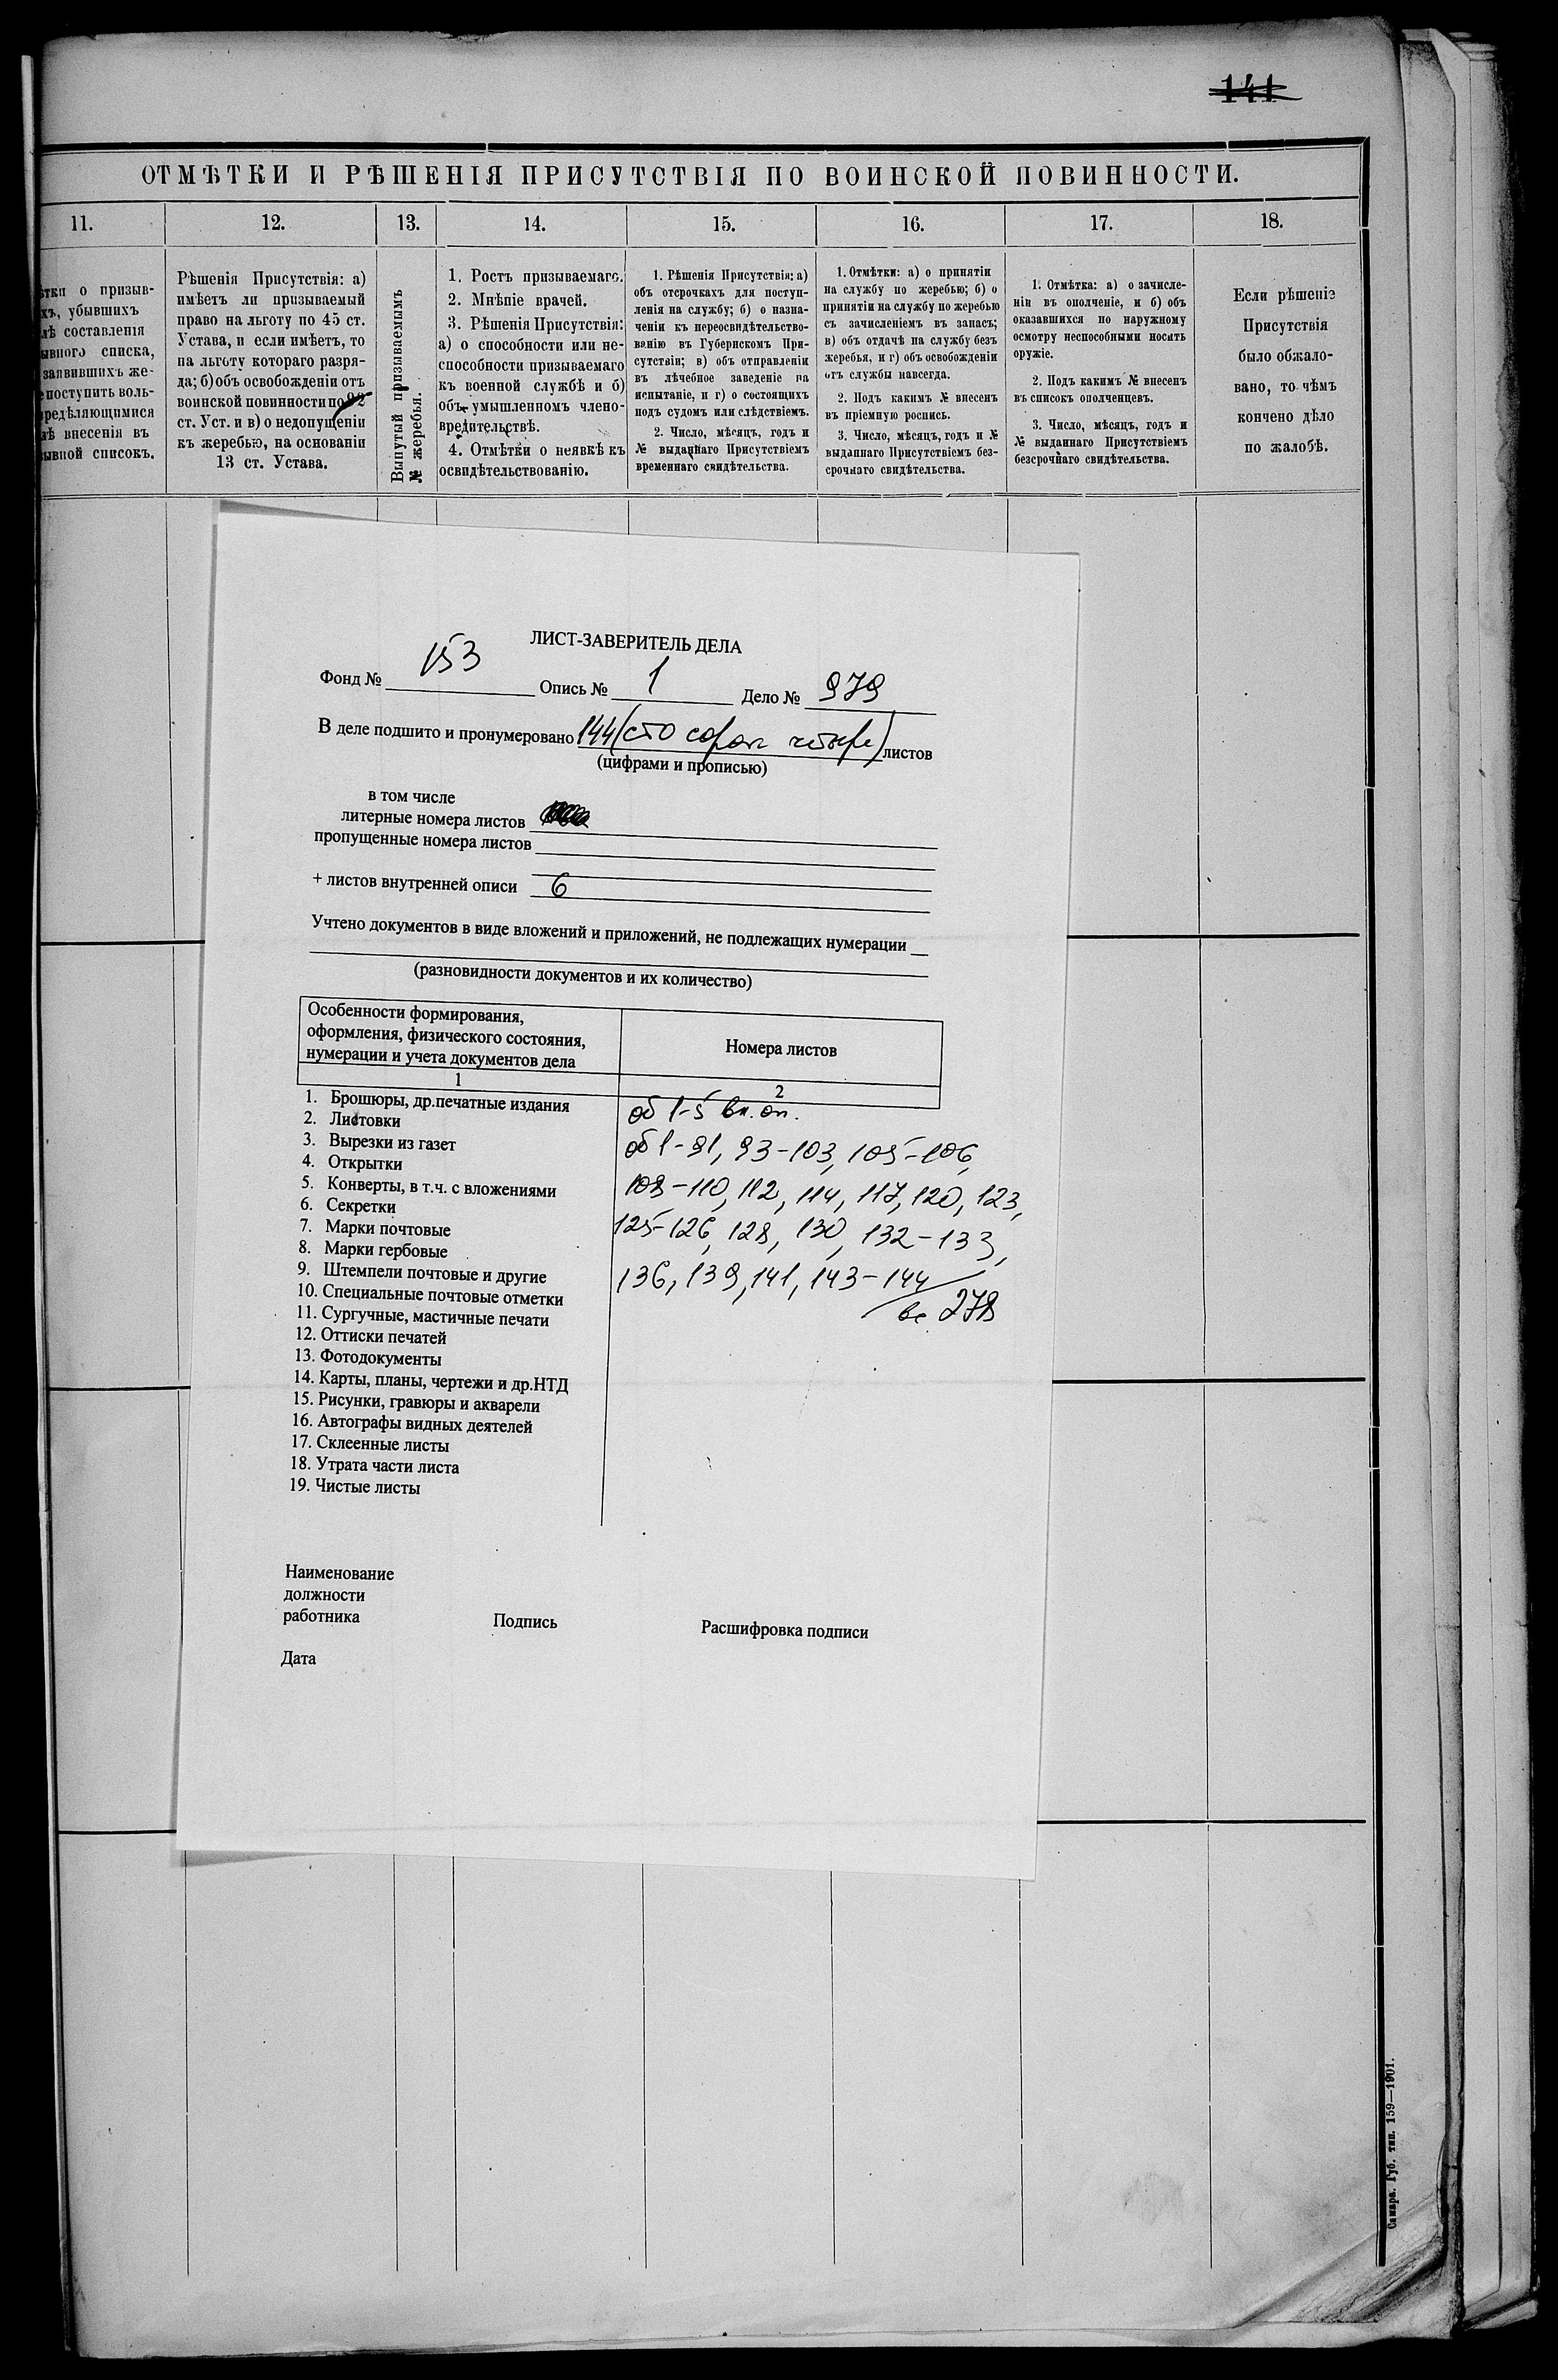 141
ОТМѢТКИ И РѢШЕНІЯ ПРИСУТСТВІЯ ПО ВОИНСКОЙ ПОВИННОСТИ.
11.
12.
13.
14.
15.
16.
17.
18.
о призыв-
убывшихъ
составленія
списка,
заявившихъ же-
поступить воль-
внесенія въ
списокъ.
Рѣшенія Присутствія: а)
имѣетъ ли призываемый
право на льготу по 45 ст.
Устава, и если имѣетъ, то
на льготу котораго разря-
да; б) объ освобожденіи отъ
воинской повинности по
ст. Уст. и в) о недопущеніи
къ жеребью, на основаніи
13 ст. Устава.
Вынутый призываемымъ
№ жеребья.
1. Ростъ призываемаго.
2. Мнѣніе врачей.
3. Рѣшенія Присутствія:
а) о способности или не-
способности призываемаго
къ военной службѣ и б)
объ умышленномъ члено-
вредительствѣ.
4. Отмѣтки о неявкѣ къ
освидѣтельствованію.
1. Рѣшенія Присутствія: а)
объ отсрочкахъ для поступ-
ленія на службу; б) о назна-
ченіи къ переосвидѣтельство-
ванію въ Губернскомъ При-
сутствіи; в) объ отправленіи
въ лѣчебное заведеніе на
испытаніе, и г) о состоящихъ
подъ судомъ или слѣдствіемъ.
2. Число, мѣсяцъ, годъ и
№ выданнаго Присутствіемъ
временнаго свидѣтельства.
1. Отмѣтки: а) о принятіи
на службу по жеребью; б) о
принятіи на службу по жеребью
съ зачисленіемъ въ запасъ;
в) объ отдачѣ на службу безъ
жеребья, и г) объ освобожденіи
отъ службы навсегда.
2. Подъ какимъ № внесенъ
въ пріемную роспись.
3. Число, мѣсяцъ, годъ и №
выданнаго Присутствіемъ без-
срочнаго свидѣтельства.
1. Отмѣтка: а) о зачисле-
ніи въ ополченіе, и б) объ
оказавшихся по наружному
осмотру неспособными носить
оружіе.
2. Подъ какимъ № внесенъ
въ списокъ ополченцевъ.
3. Число, мѣсяцъ, годъ и
№ выданнаго Присутствіемъ
безсрочнаго свидѣтельства.
Если рѣшеніе
Присутствія
было обжало-
вано, то чѣмъ
кончено дѣло
по жалобѣ.
ЛИСТ-ЗАВЕРИТЕЛЬ ДЕЛА
Фонд № 153 Опись № 1 Дело № 979
В деле подшито и пронумеровано 144 (сто сорок четыре) листов
(цифрами и прописью)
в том числе
литерные номера листов
пропущенные номера листов
+ листов внутренней описи 6
Учтено документов в виде вложений и приложений, не подлежащих нумерации
(разновидности документов и их количество)
Особенности формирования,
оформления, физического состояния,
нумерации и учета документов дела
Номера листов
1
2
1. Брошюры, др.печатные издания
2. Листовки
3. Вырезки из газет
4. Открытки
5. Конверты, в т.ч. с вложениями
6. Секретки
7. Марки почтовые
8. Марки гербовые
9. Штемпели почтовые и другие
10. Специальные почтовые отметки
11. Сургучные, мастичные печати
12. Оттиски печатей
13. Фотодокументы
14. Карты, планы, чертежи и др.НТД
15. Рисунки, гравюры и акварели
16. Автографы видных деятелей
17. Склеенные листы
18. Утрата части листа
19. Чистые листы
об 1-5 вн. оп.
об 1-91, 93-103, 105-106,
109-110, 112, 114, 117, 120, 123,
125-126, 128, 130, 132-133,
136, 139, 141, 143-144
Наименование
должности
работника
Подпись
Расшифровка подписи
Дата
Самара. Губ. тип. 159—1901.